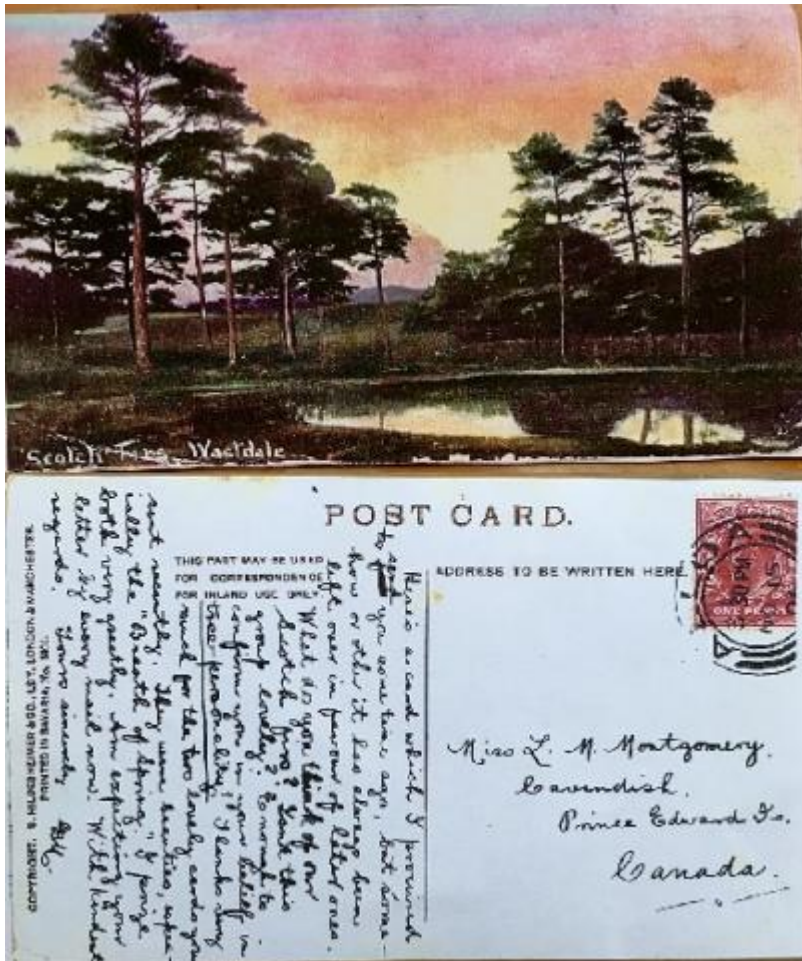 Scotch Firs, Wastdale
POST CARD.
THIS PART MAY BE USED
FOR CORRESPONDENCE
FOR INLAND USE ONLY.
ADDRESS TO BE WRITTEN HERE.
ONE PENNY
Here is a card which I promised
to send you some time ago, but some-
how or other it has always been
left over in favour of later ones.
What do you think of our
Scotch firs? Isn't this
group lovely? Enough to
confirm you in your belief in
tree personality! Thanks very
much for the two lovely cards you
sent recently. They were beauties, espec-
ially the "Breath of Spring." I prize
both very greatly. Am expecting your
letter by every mail now. With kindest
regards. Yours sincerely
Miss L. M. Montgomery.
Cavendish.
Prince Edward Is.
Canada.
COPYRIGHT. S. HILDESHEIMER & CO., LONDON & MANCHESTER.
PRINTED IN BAVARIA, No.